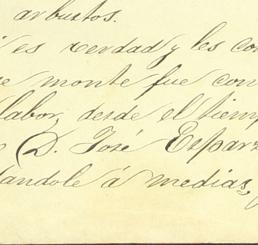 arbustos.
es verdad y les con
e monte fue con
labor, desde el tiemp
D. José Esparz
dandole á medias,